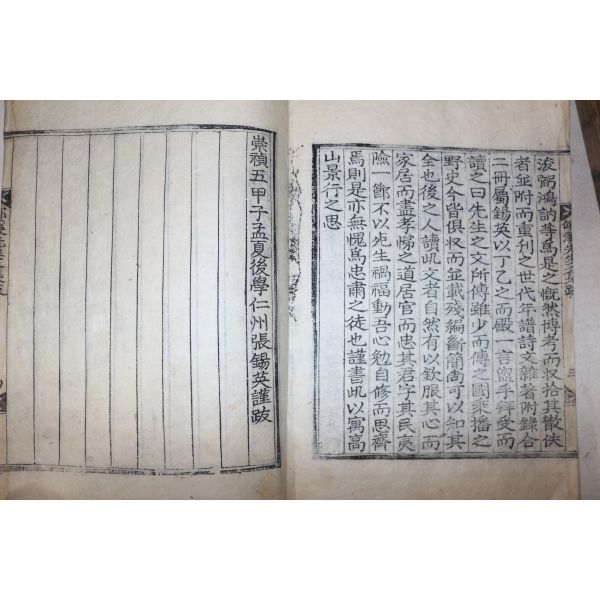 浚弼鴻訥等爲是之慨然博考而収拾其散佚
者並附而重刊之世代年譜詩文雜著附錄合
二冊屬錫英以丁乙之而嚴一言盥手拜受而
讀之曰先生之文所傳雖少而傳之國乘播之
野史今皆俱収而並載殘編斷簡尙可以知其
全也後之人讀此文者自然有以欽服其心而
家居而盡孝悌之道居官而忠其君字其民夷
險一節不以死生禍福動吾心勉自修而思齊
焉則是亦無愧爲忠肅之徒也謹書此以寓高
山景行之思
崇禎五甲子孟夏後學仁州張錫英謹跋